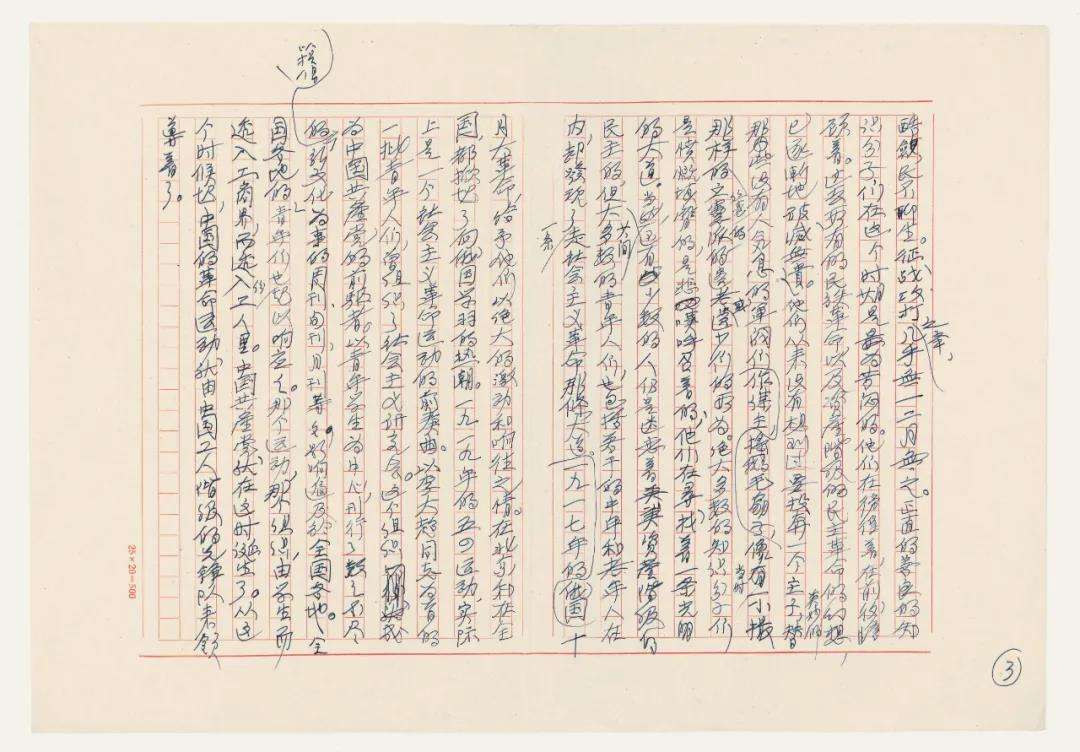 酷,民不聊生。征战攻打之事,几乎无一二月无之。正直的善良的知
识分子们在这个时期是最为苦闷的。他们在徬徨着,在前後瞻
顾着。也有所有的民族革命以及资产阶级的民主革命的幻想,
已逐渐地破灭无遗。他们从来没有想到过要投奔一个主子,替
那些没有人气息的军阀们作谋士,摇鹅毛扇子,像有一小撮
那样的文坛派的遗老遗少们的所为。绝大多数的知识分子们
是愤慨填膺的,是想呼号着的,他们在寻找着一条光明
的大道。当然,还有少数的人仍是迷恋着资产阶级的
民主的,但大多数的青年人们,也包括若干的中年和老年人在
内,却发现了走社会主义革命那一条大道。一九一七年的俄国十
月大革命,给予他们以绝大的激动和响往之情。在北京和在全
国,都掀起了向俄国学习的热潮。一九一九年的五四运动,实际
上是一个社会主义革命运动的前奏曲。以李大钊同志为首的
一批青年人们,曾组织了社会主义研究会。这个组织
为中国共产党的前驱者。以青年学生为中心,刊行了数之不尽
的以新文化为事的周刊、旬刊、月刊等,影响遍及于全国各地。全
国各地的青年们也起以响应之。那个运动,那个组织,由学生而
进入工商界,而进入工人里。中国共产党就在这时诞生了。从这
个时候起,中国的革命运动就由中国工人阶级的先锋队来领
导着了。
25×20=500
3